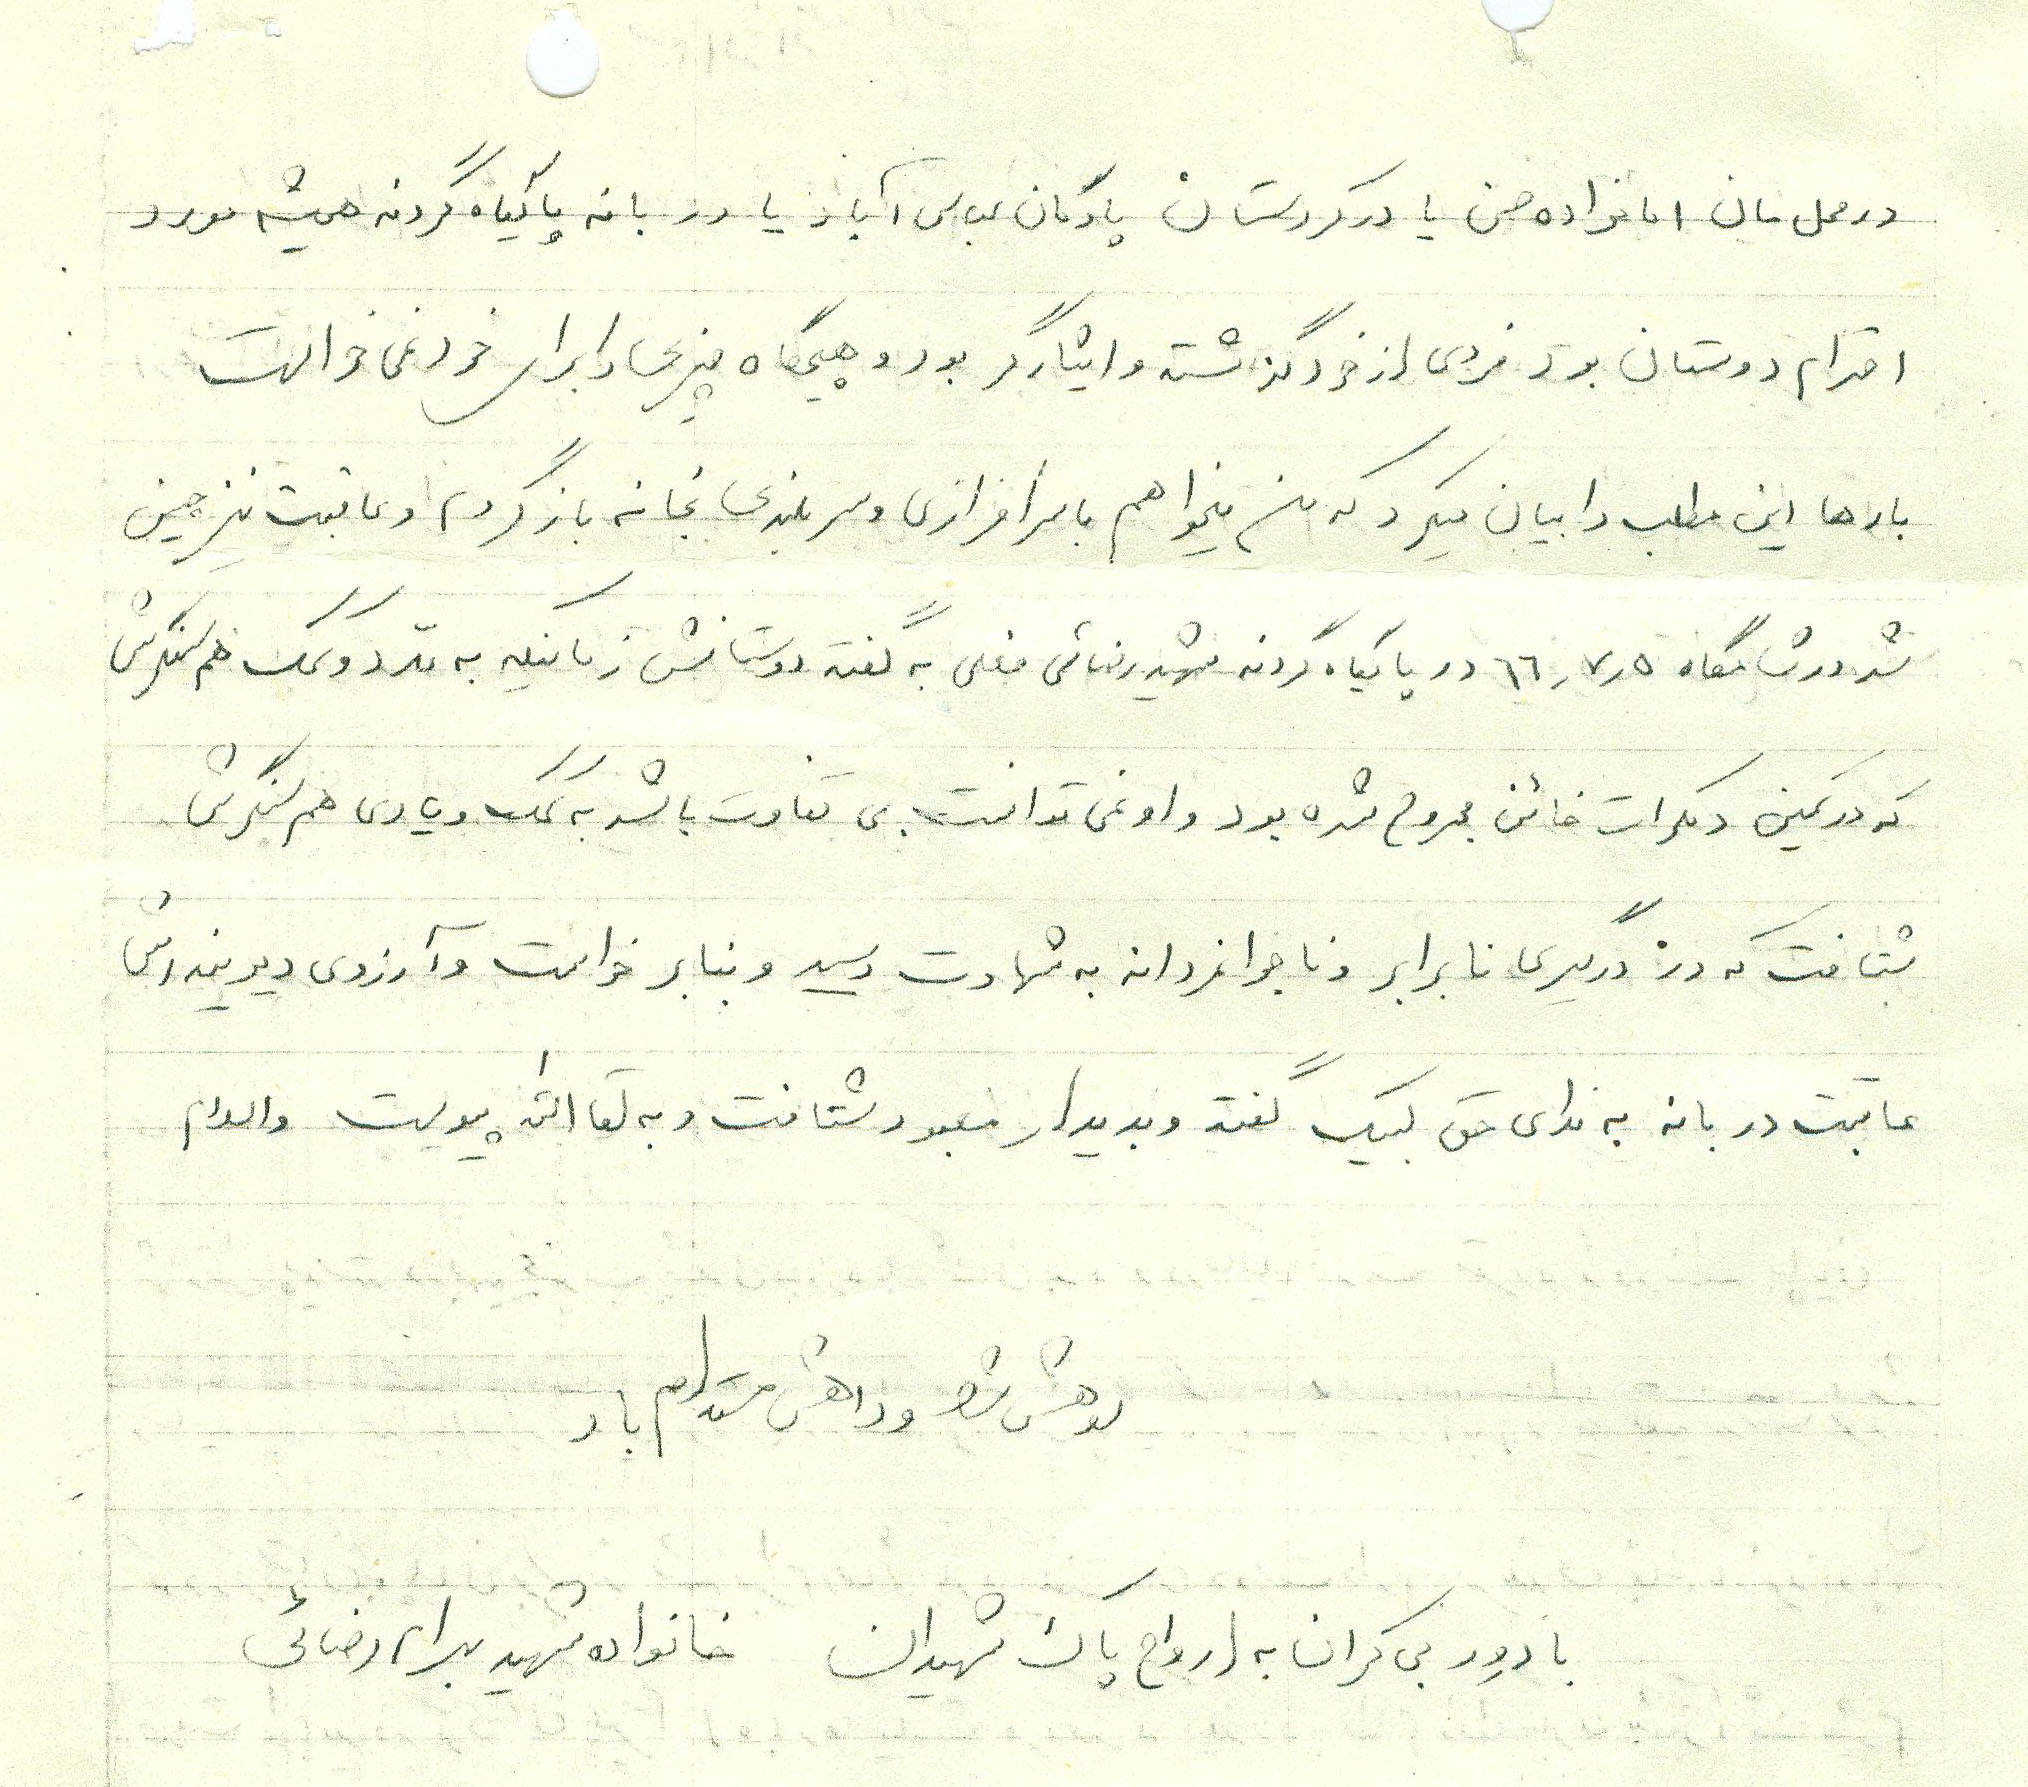 در محل مان امامزاده حسن یا در کردستان پادگان عباس آباد یا در بانه پایگاه گردنه همیشه مورد
احترام دوستان بود فردی از خود گذشته و ایثارگر بود و هیچگاه چیزی را برای خود نمی خواست
بارها این مطلب را بیان میکرد که من میخواهم با سرافرازی و سربلندی بخانه بازگردم و عاقبت نیز چنین
شد در شامگاه ۶۶٫۷٫۵ در پایگاه گردنه شهید رضائی فعلی به گفته دوستانش زمانیکه به مدد و کمک هم سنگرش
که در کمین دمکرات خائن مجروح شده بود و او نمی توانست بی تفاوت باشد به کمک و یاری هم سنگرش
شتافت که در درگیری نابرابر و ناجوانمردانه به شهادت رسید و بنابر خواست و آرزوی دیرینه اش
عاقبت در بانه به ندای حق لبیک گفته و بدیدار معبود شتافت و به لقا الله پیوست والسلام
روحش شاد و راهش مستدام باد
با درود بی کران به ارواح پاک شهیدان خانواده شهید بهرام رضائی